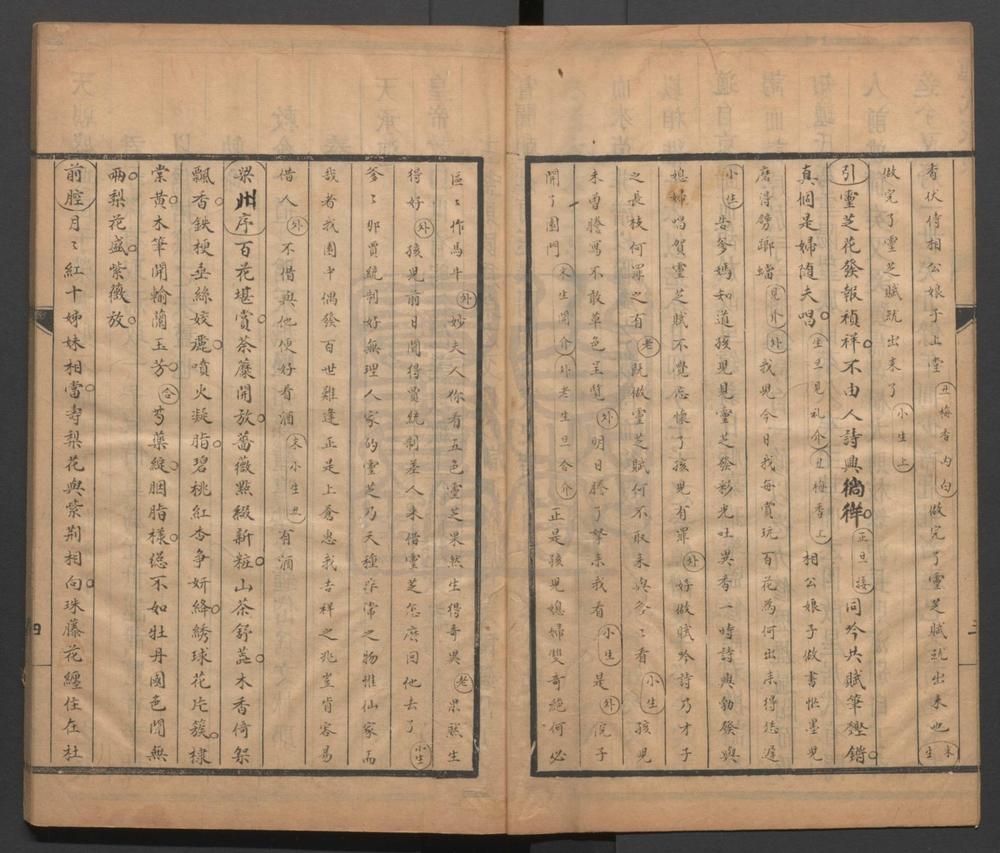 看伏侍相公娘子上堂丑梅香内白做完了靈芝賦就出來也末生
做完了靈芝賦就出來了小生上
引靈芝花發報禎祥不由人詩興徜徉正旦接同吟共賦筆鏗鏘
真個是婦隨夫唱生旦見礼介丑梅香上相公娘子做書恠墨兒
磨得髈瑯璫見外外我兒今日我每賞玩百花為何出來得恁遲
小生告爹媽知道孩兒見靈芝發彩光吐異香一時詩興勃發與
媳婦唱賀靈芝賦不覺忘懷了孩兒有罪外好做賦吟詩乃才子
之長枝何罪之有老既做靈芝賦何不取來與爹〻看小生孩兒
未曾謄寫不敢草色呈覽外明日謄了拏來我看小生是外院子
開了園門末生開介外老生旦合介正是孩兒媳婦雙奇絶何必
區〻作馬牛外妙夫人你看五色靈芝果然生得奇異老果然生
得好外孩兒前日聞得賈統制差人來借靈芝怎麼回他去了小生
爹〻那賈統制好無理人家的靈芝乃天種非常之物惟仙家而
我者我園中偶發百世難逢正是上蒼惠我吉祥之兆豈肯容易
借人外不借與他便好看酒末小生丑有酒
梁州序百花堪賞荼蘼開放薔薇點綴新粧山茶舒蕋木香倚架
飄香鉄梗垂絲姣麗噴火凝脂碧桃紅杏争妍絳綉球花片簇棣
棠黄木筆開輸蘭玉芳合芍藥綻胭脂樣縂不如牡丹國色閙無
兩梨花盛紫薇放
前腔月〻紅十姊妹相當壽梨花與紫荆相向珠藤花纏住在杜